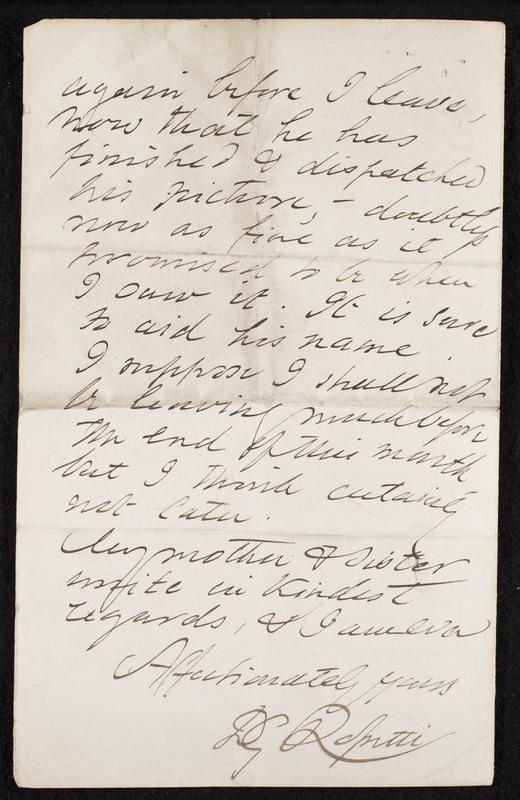 again before I leave,
now that he has
finished & dispatched
his picture, – doubtless
now as fine as it
promised to be when
I saw it. It is sure
to aid his name.
I suppose I shall not
be leaving much before
the end of this month
but I think certainly
not later.
My mother & sister
unite in kindest
regards, & I am ever
Affectionately yours
DG Rossetti